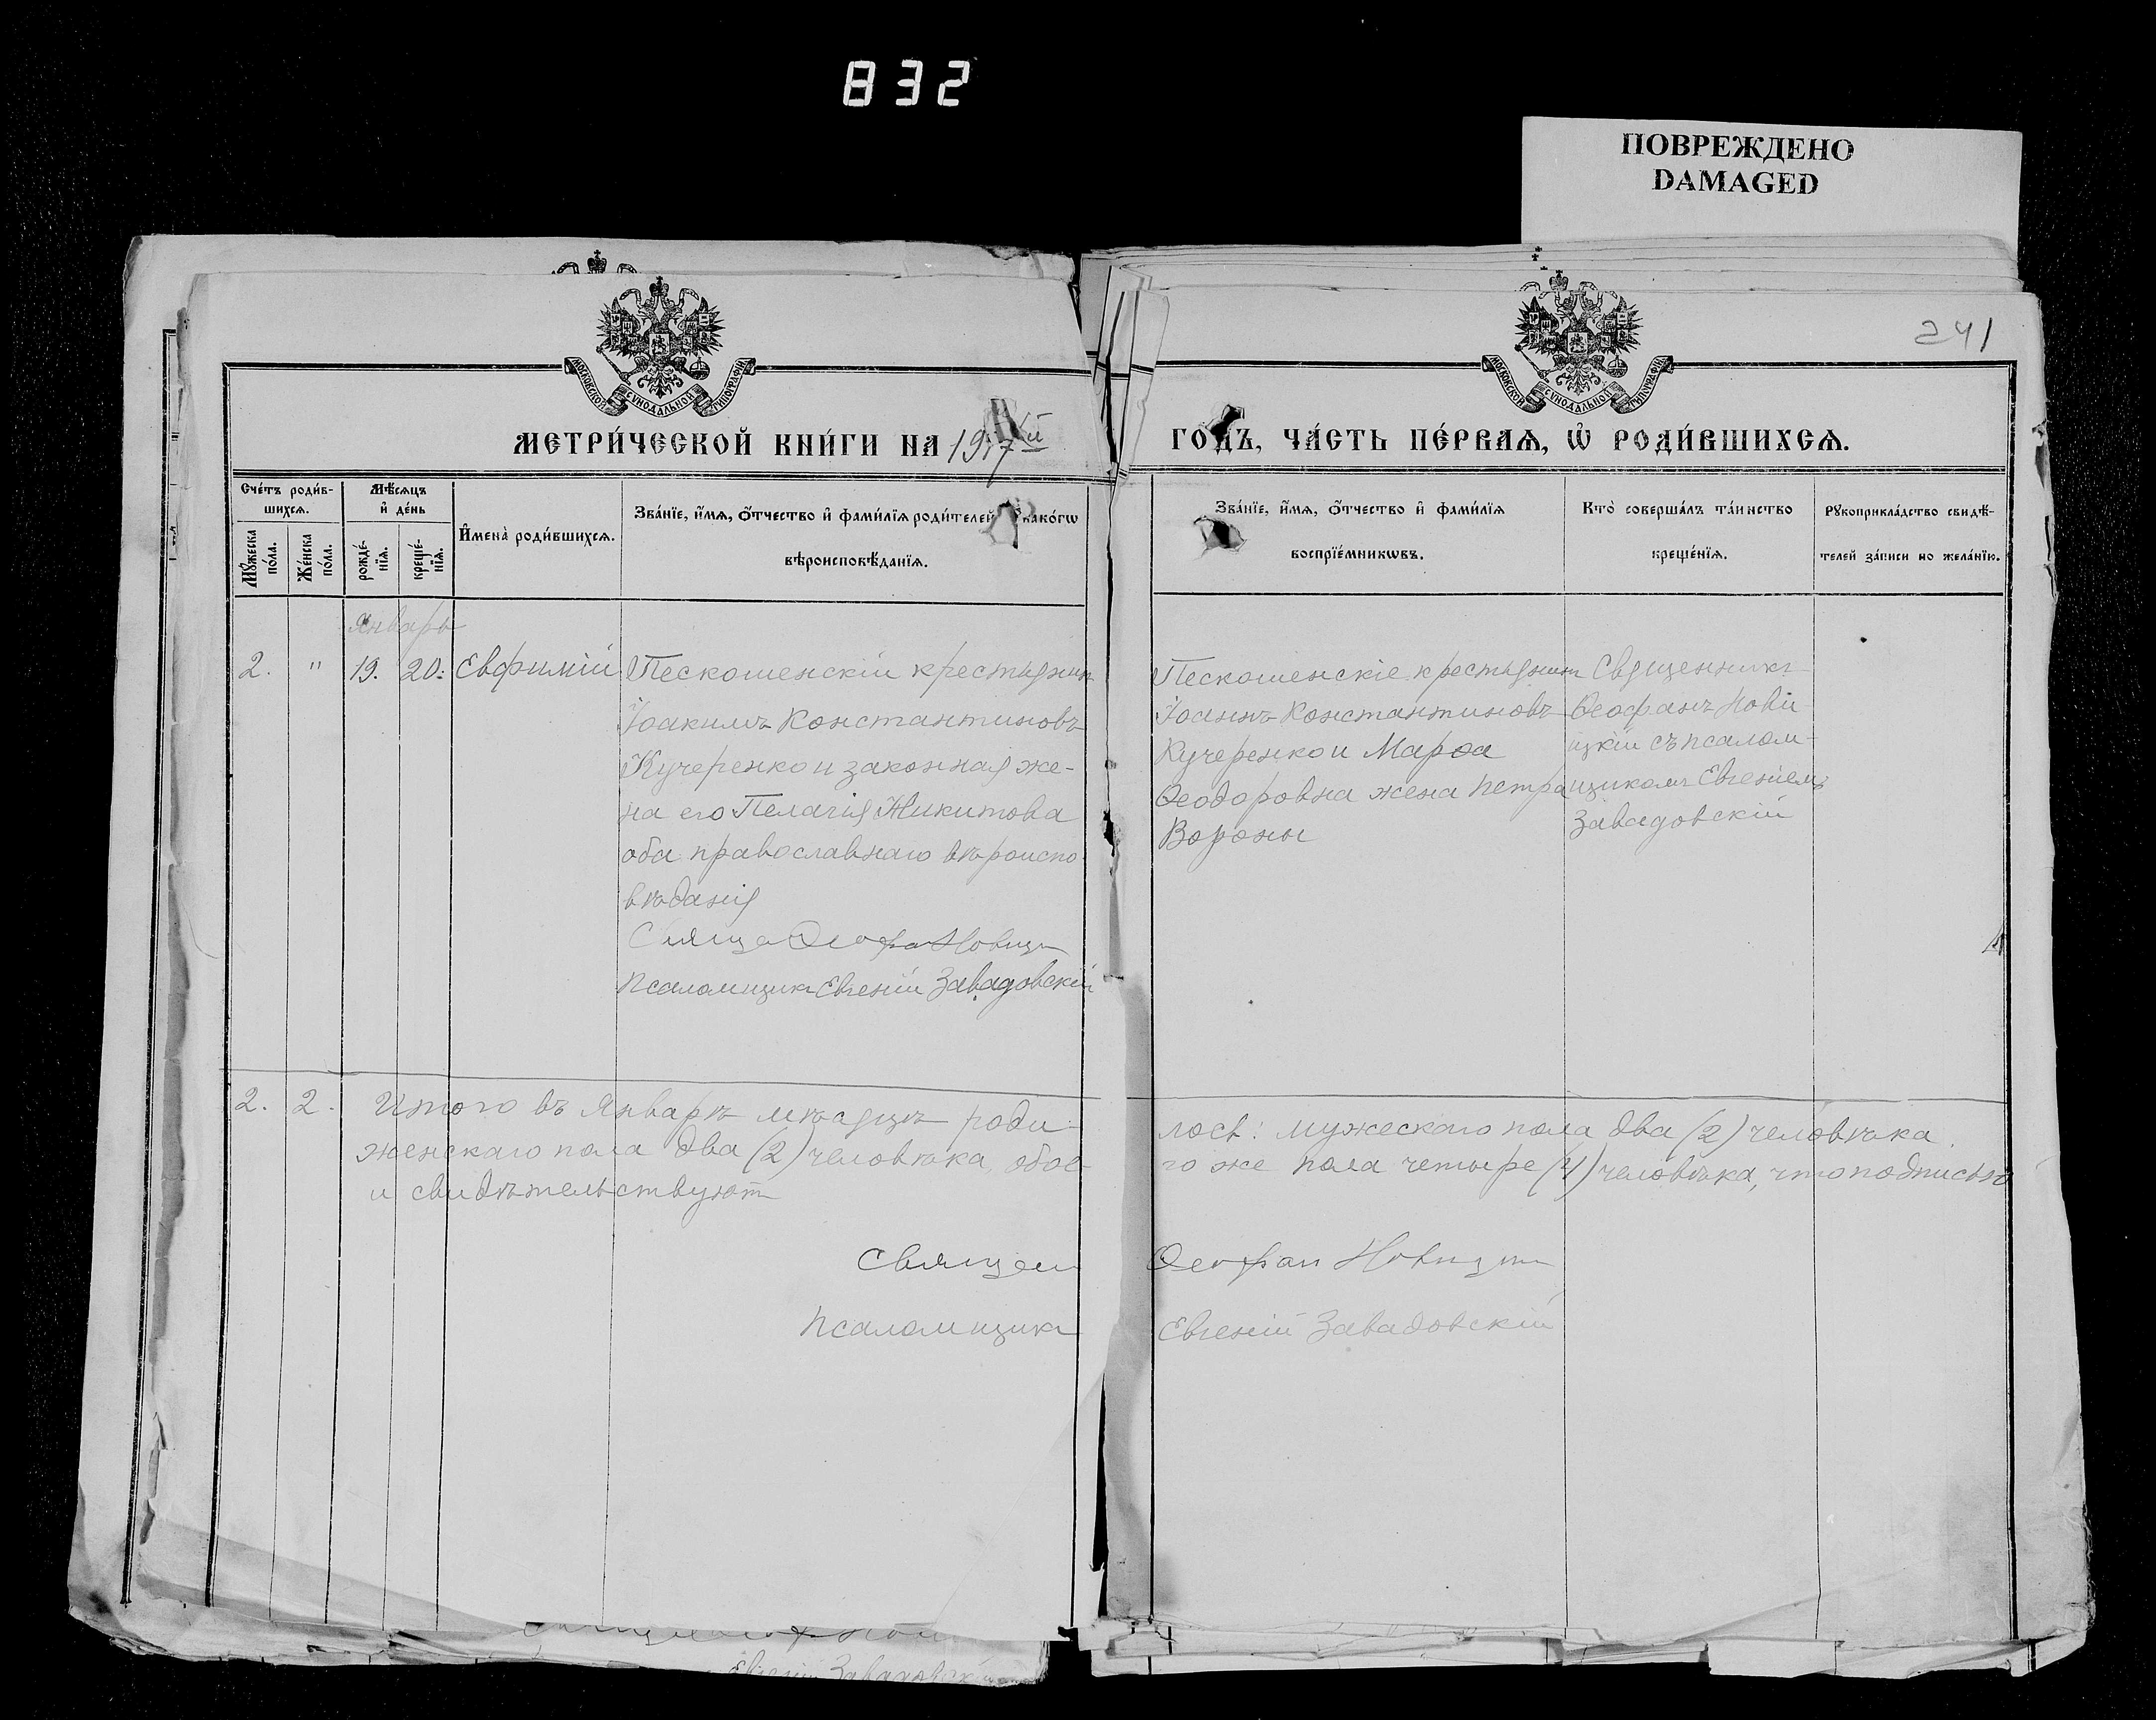 832
ПОВРЕЖДЕНО
DAMAGED
241
МОСКОВСКОЙ СѴНОДАЛЬНОЙ ТИПОГРАФІИ
МОСКОВСКОЙ СѴНОДАЛЬНОЙ ТИПОГРАФІИ
МЕТРИ́ЧЕСКОЙ КНИ́ГИ НА 1917 ГОДЪ, ЧА́СТЬ ПЕ́РВАѦ, Ѡ҆ РОДИ́ВШИХСѦ.
Сче́тъ роди́в-
шихсѧ.
Мꙋ́жеска по́ла.
Же́нска по́ла.
Мѣ́сѧцъ
и҆ де́нь
рожде́-нїѧ.
креще́-нїѧ.
И҆мена̀ роди́вшихсѧ.
Зва́нїе, и҆́мѧ, ѻ҆́тчество и҆ фами́лїѧ роди́телей како́гѡ
вѣроисповѣ́данїѧ.
Зва́нїе, и҆́мѧ, ѻ҆́тчество и҆ фами́лїѧ
воспрїе́мникѡвъ.
Кто̀ соверша́лъ та́инство
креще́нїѧ.
Рꙋкоприкла́дство свидѣ́-
телей за́писи по жела́нїю.
Январь
2. " 19. 20. Евфимій
Пескошенскій крестьянин
Іоакимъ Константиновъ
Кучеренко и законная же-
на его Пелагія Никитова
оба православнаго вѣроиспо
вѣданія
Новиц
Псаломщикъ Евгеній Завадовскій
Пескошенскіе крестьянин
Іоаннъ Константиновъ
Кучеренко и Марѳа
Ѳеодоровна жена Петра
Вороны
Священникъ
Ѳеофанъ Нови-
цкій съ псалом-
щикомъ Евгеніемъ
Завадовскій
2. 2. Итого въ Январѣ мѣсяцѣ роди лось: мужескаго пола два (2) человѣка.
женскаго пола два (2) человѣка, обое- го же пола четыре (4) человѣка, что подписью
и свидѣтельствуют
Священ Ѳеофан Новицки
Псаломщикъ Евгеній Завадовскій
Евгеній Завадовскій